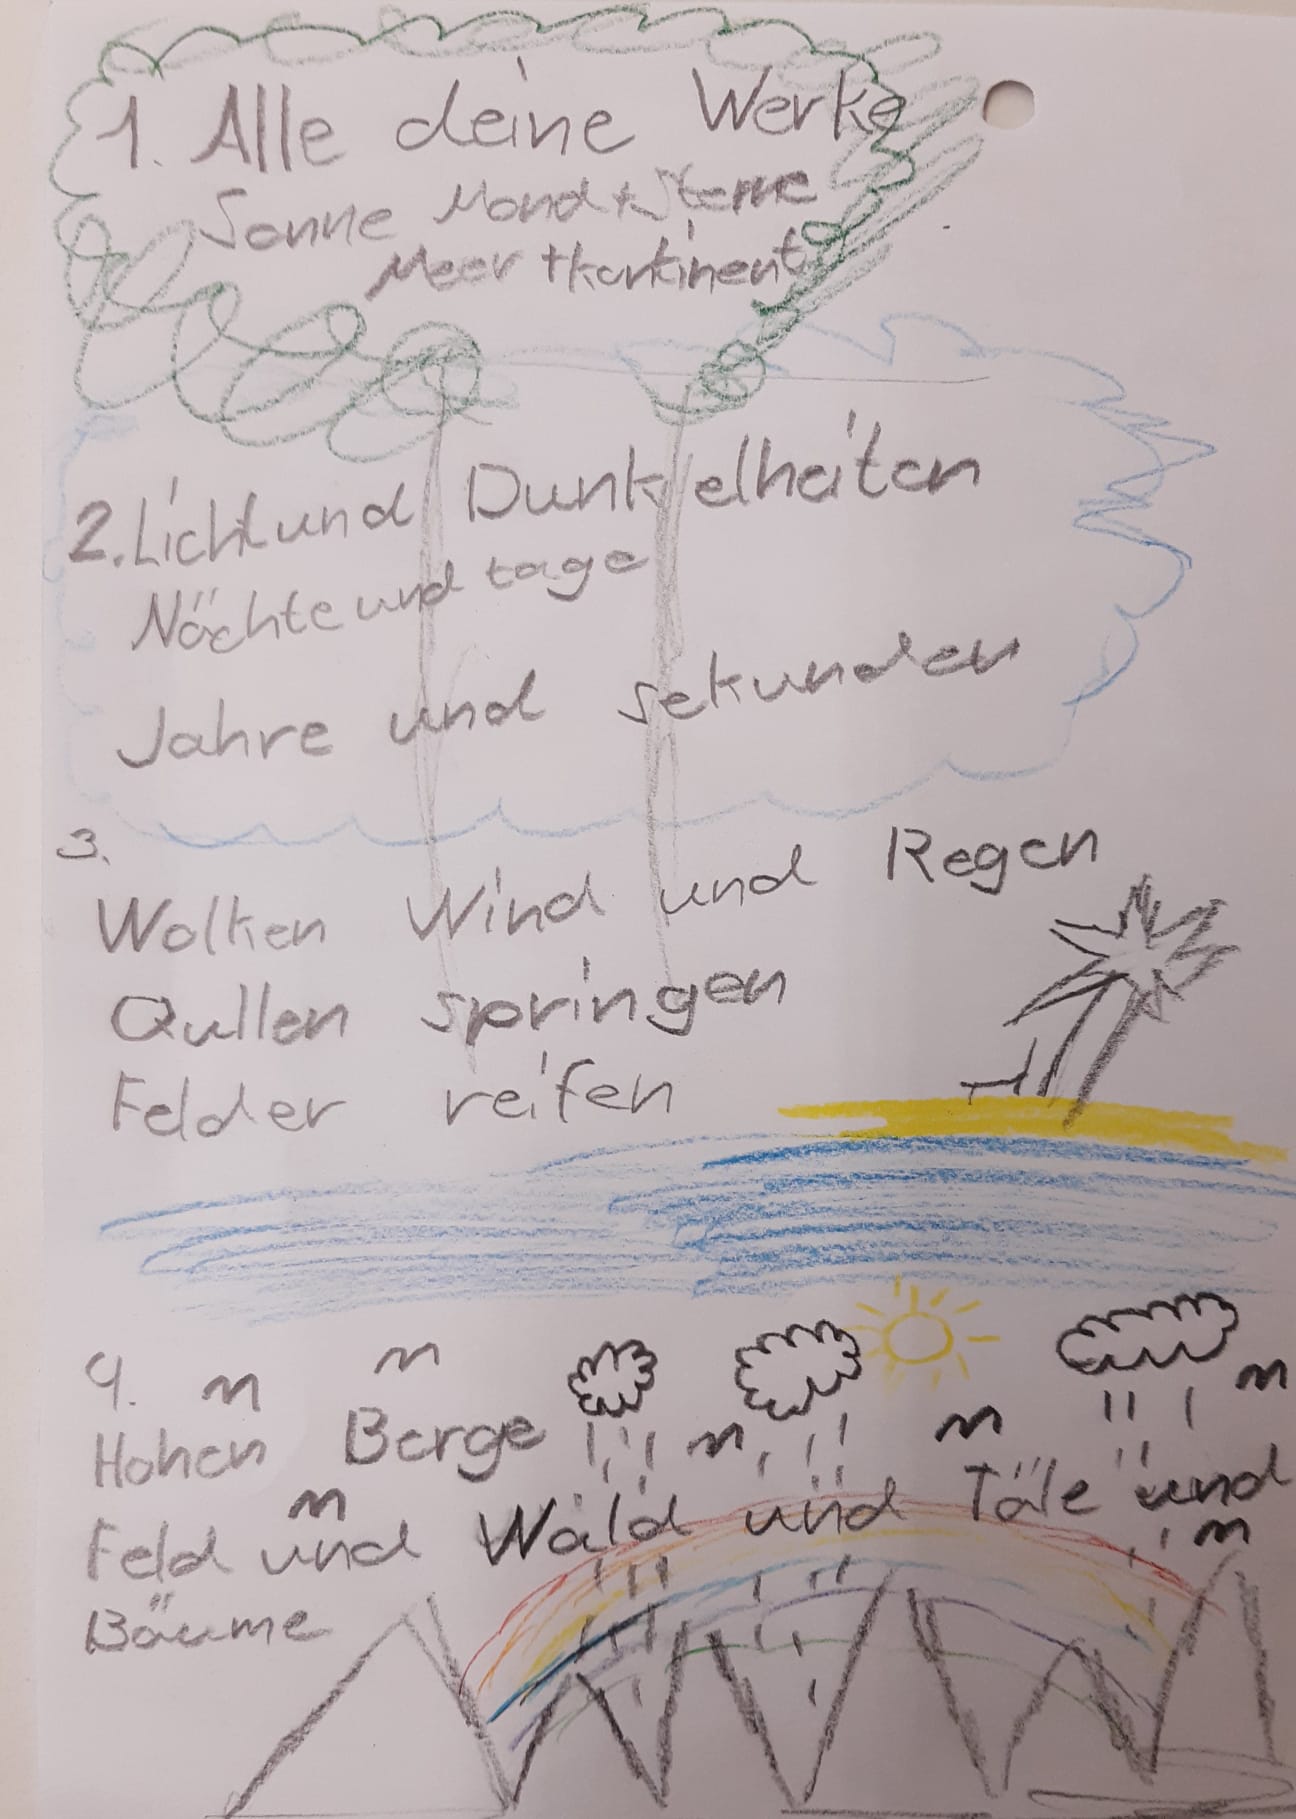 1. Alle deine Werke
Sonne Mond + Sterne
Meer + Kontinent
2. Licht und Dunkelheiten
Nächte und tage
Jahre und sekunden
3.
Wolken Wind und Regen
Qullen springen
Felder reifen
4.
Hohen Berge
Feld und Wald und Täle und
Bäume